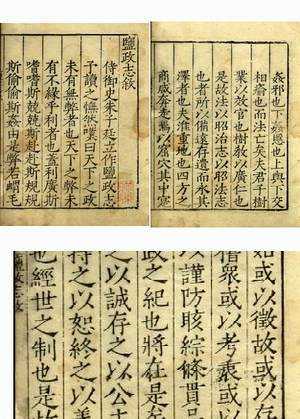 鹽政志敘
侍御史朱子廷立作鹽政志
予讀之憮然嘆曰天下之政
未有無弊者也天下之弊未
有不緣乎利者也蓋利廣斯
嗜嗜斯競競斯赴赴斯規規
斯偷偷斯姦由是弊若蝟毛
姦邪也下姦慝也上與下交
相瘉也而法亡矣夫君子樹
業以效官也樹敎以廣仁也
是故法以昭治志以昭法
也者所以備遠存遺而永其
澤者也夫淮重地也四方之
商咸奔走焉以窟穴其中
如或以徵故或以存
稽衆或以考衷或以
以謹防晐綜條貫
政之紀也將在是
之以誠存之以公
持之以恕終之以
也經世之制也是故
鹽政志敘